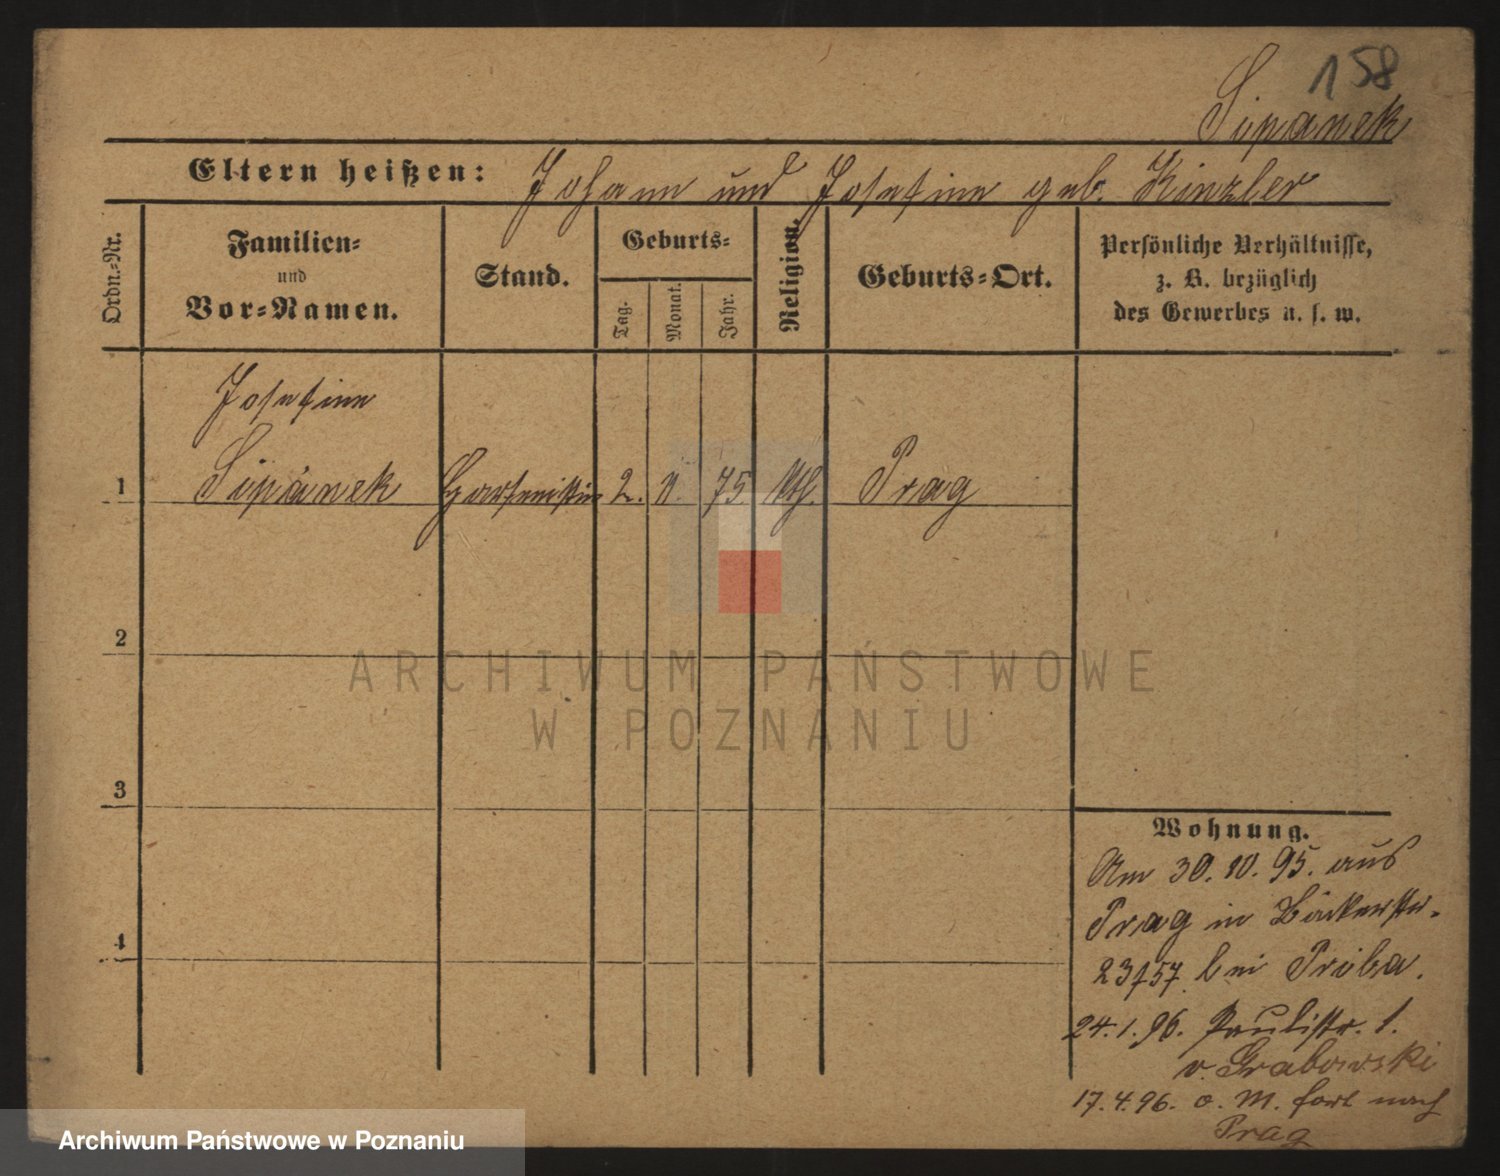 158
Sipanek
Eltern heißen: Johann und Josefine geb. Kinzler
Ordn.-Nr.
Familien-
und
Vor-Namen.
Stand.
Geburts-
Tag.
Monat.
Jahr.
Religion.
Geburts-Ort.
Persönliche Verhältnisse,
z. B. bezüglich
des Gewerbes u. s. w.
Josefine
1 Sipánek Harfenistin 2. 11. 75 kth. Prag
2
3
4
ARCHIWUM PAŃSTWOWE
W POZNANIU
Wohnung.
Am 30.10.95. aus
Prag in Bäckerstr.
23/57 bei Priba.
24.1.96. Paulistr. 1.
v. Grabowski
17.4.96. o. M. fort nach
Prag
Archiwum Państwowe w Poznaniu